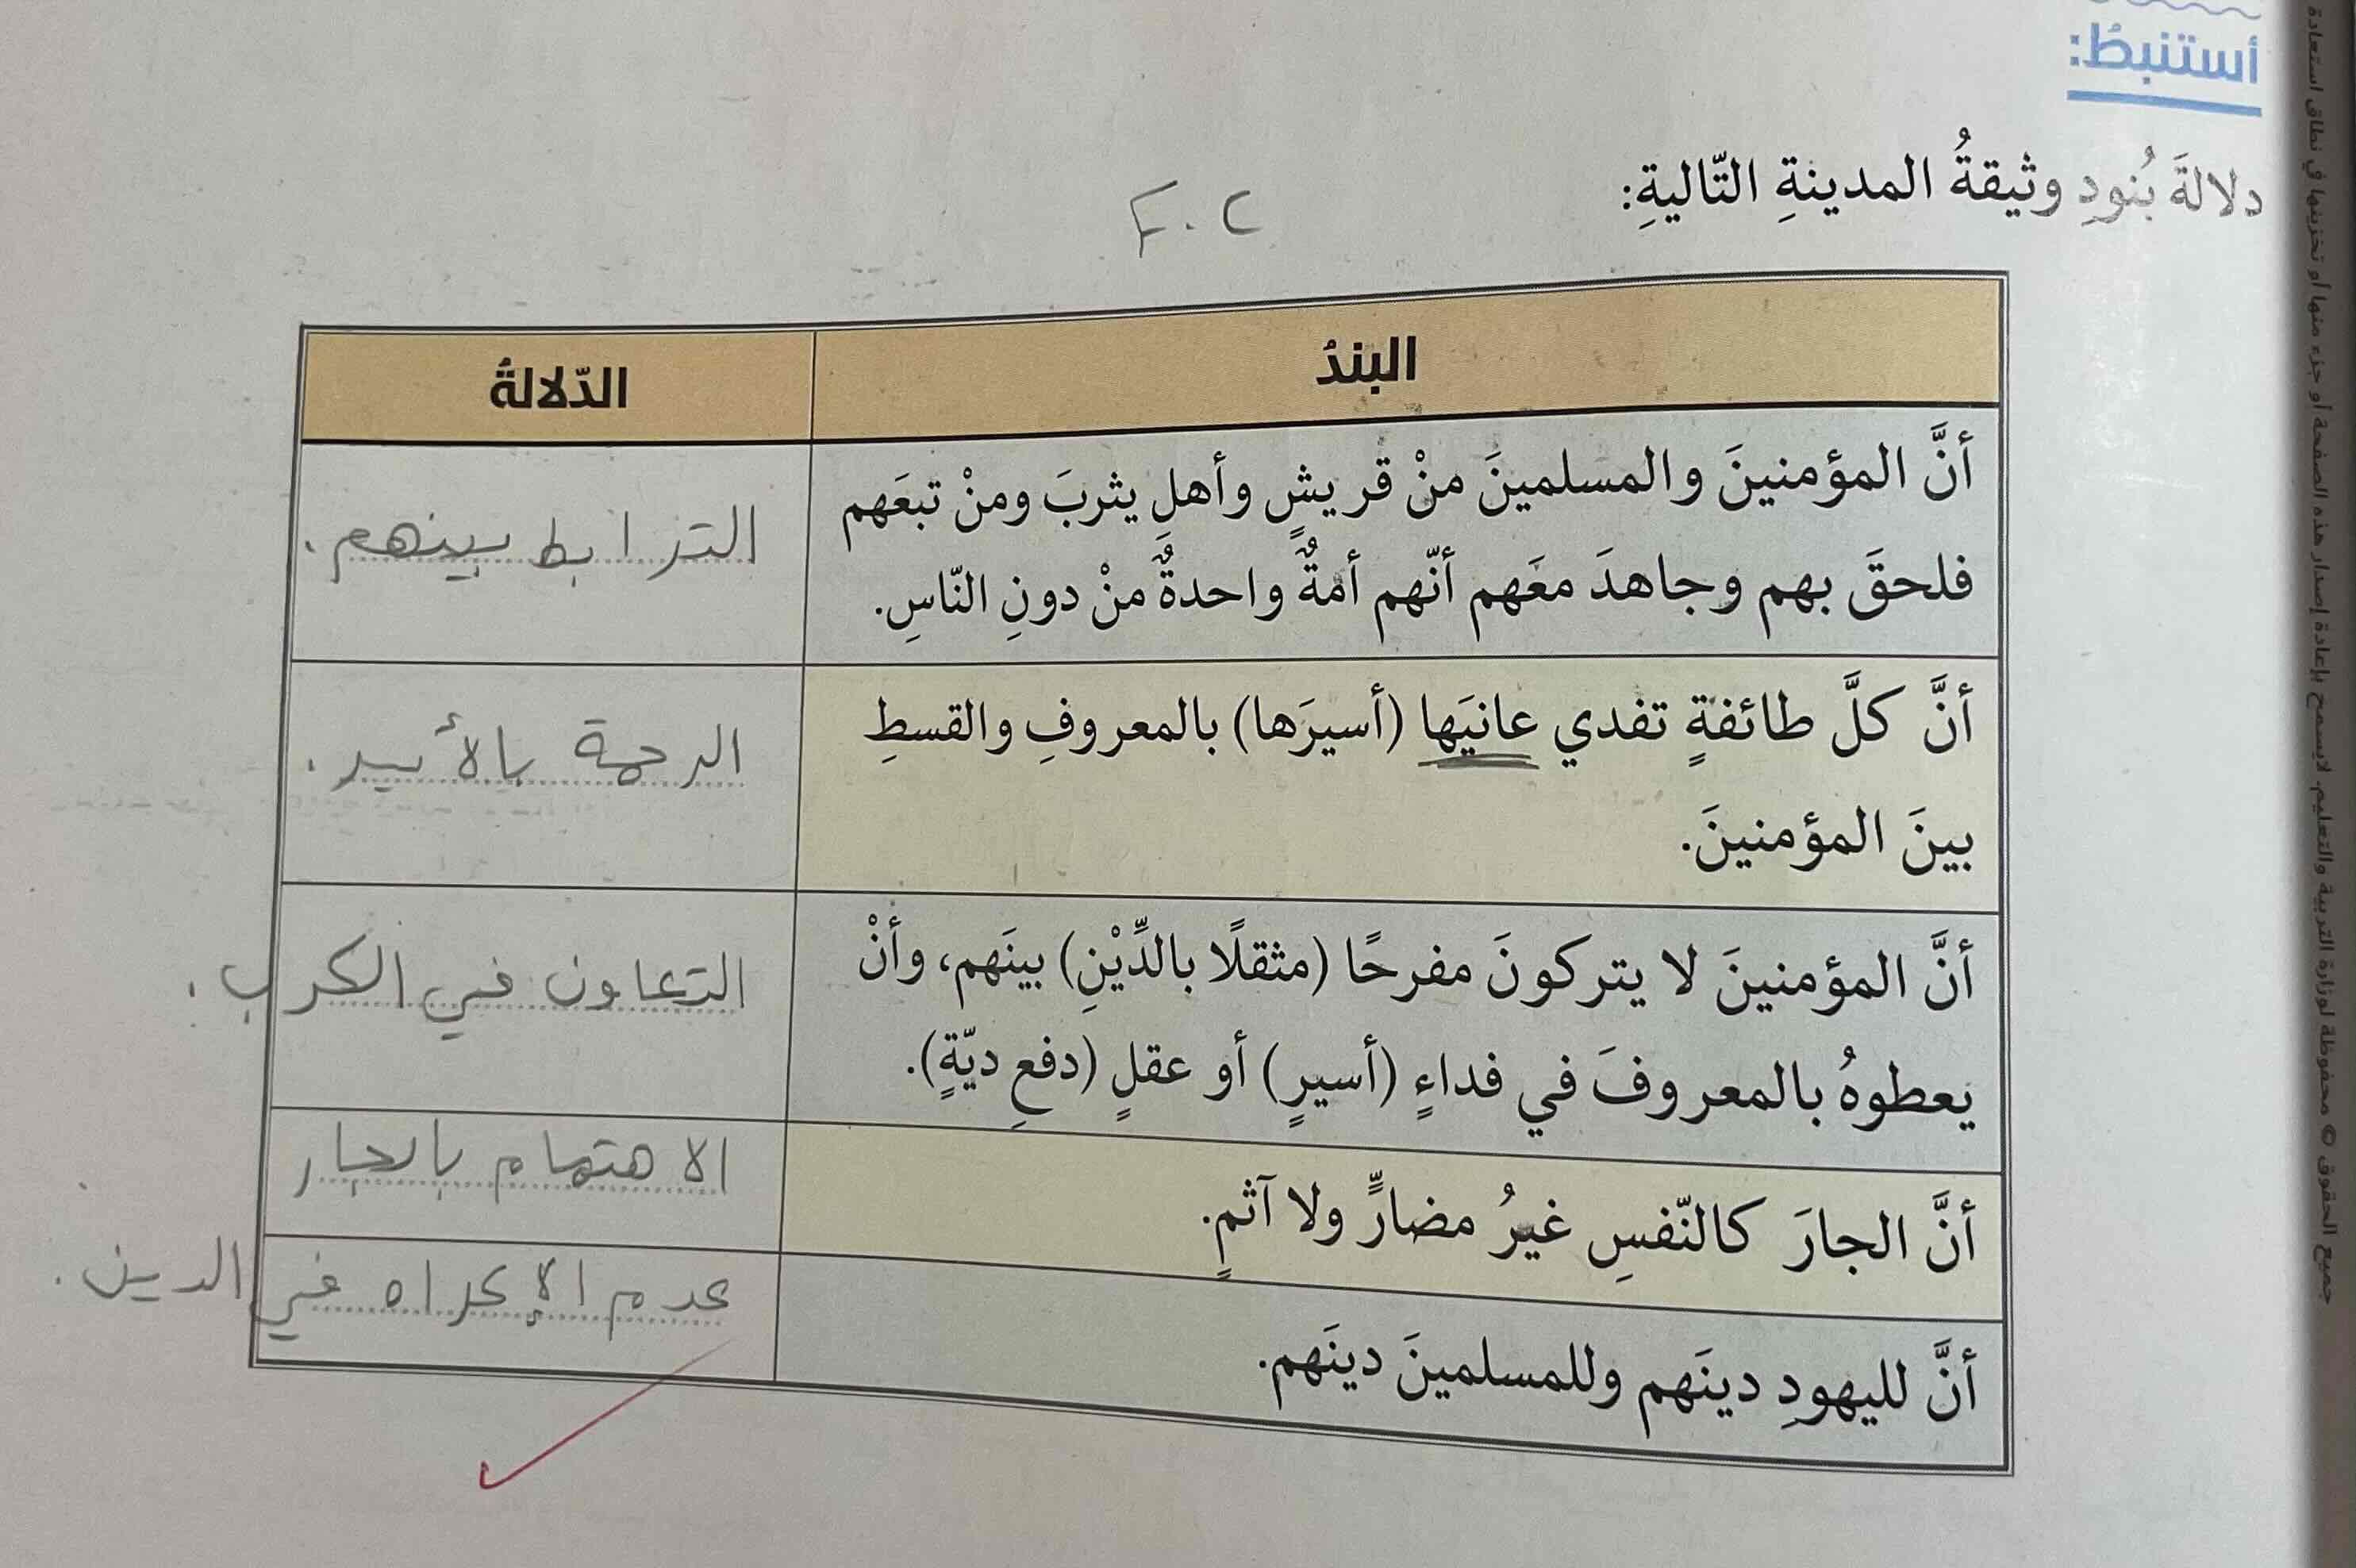 أستنبطُ:
دلالةَ بُنودِ وثيقةُ المدينةِ التّاليةِ:
F.C
البندُ
الدّلالةُ
أنَّ المؤمنينَ والمسلمينَ منْ قريشٍ وأهلِ يثربَ ومنْ تبعَهم
فلحقَ بهم وجاهدَ معَهم أنّهم أمةٌ واحدةٌ منْ دونِ النّاسِ.
الترابط بينهم.
أنَّ كلَّ طائفةٍ تفدي عانيَها (أسيرَها) بالمعروفِ والقسطِ
بينَ المؤمنينَ.
الرحمة بالأسير.
أنَّ المؤمنينَ لا يتركونَ مفرحًا (مثقلًا بالدِّيْنِ) بينَهم، وأنْ
يعطوهُ بالمعروفَ في فداءٍ (أسيرٍ) أو عقلٍ (دفعِ ديّةٍ).
التعاون في الكرب.
أنَّ الجارَ كالنّفسِ غيرُ مضارٍّ ولا آثمٍ.
الاهتمام بالجار
أنَّ لليهودِ دينَهم وللمسلمينَ دينَهم.
عدم الإكراه في الدين.
جميع الحقوق © محفوظة لوزارة التربية والتعليم. لايسمح بإعادة إصدار هذه الصفحة أو جزء منها أو تخزينها في نطاق استعادة